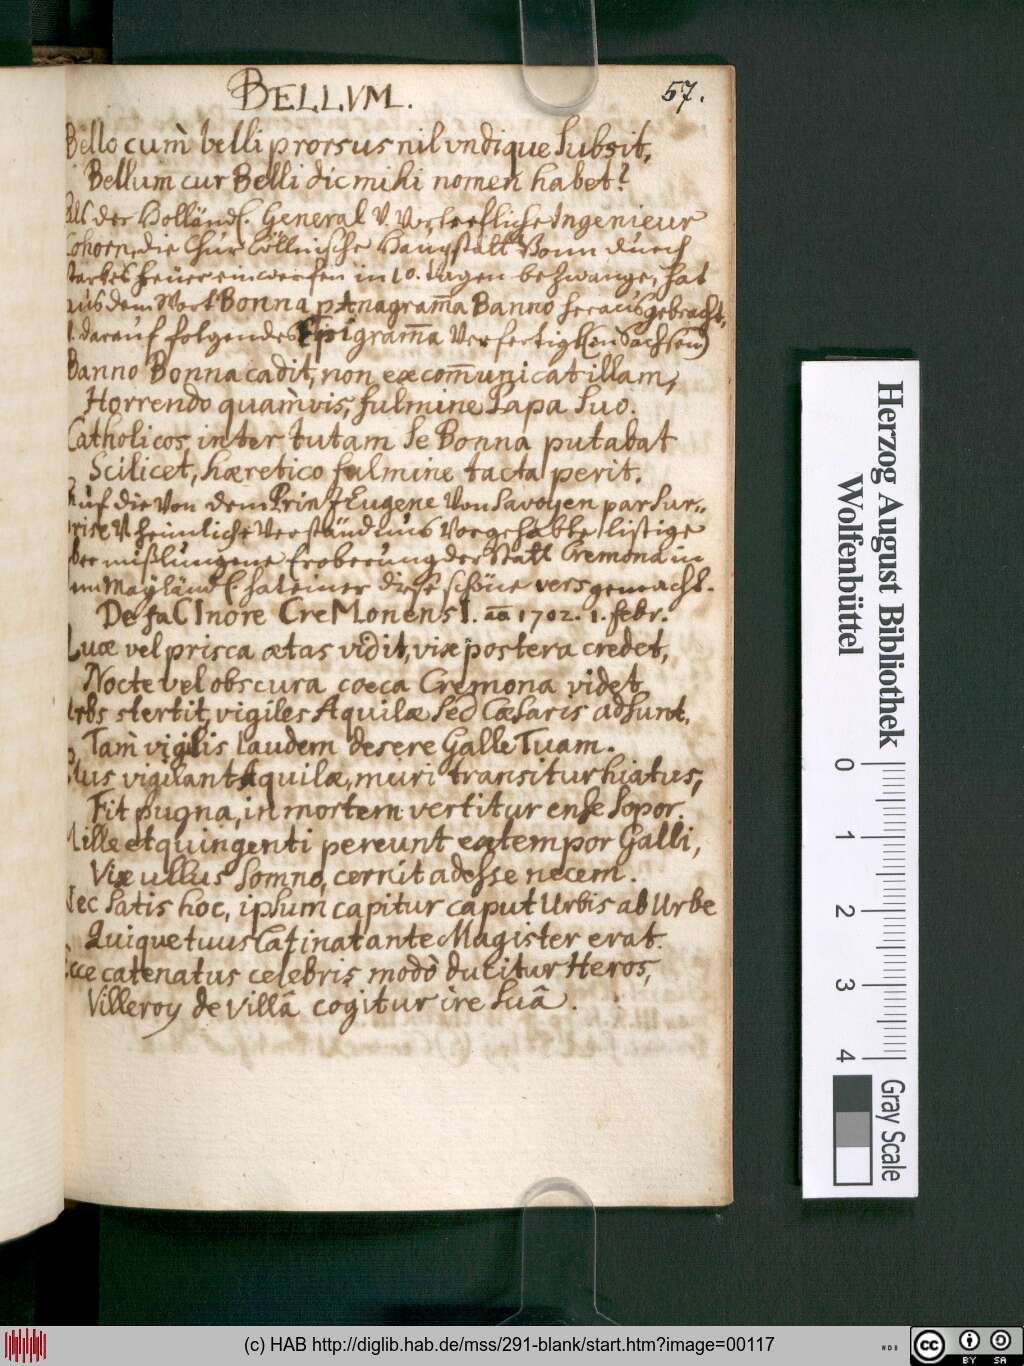 BELLVM.
57.
Bello cum belli prorsus nil vndique subsit,
Bellum cur Belli dic mihi nomen habet?
Als der Holländ. General v. vortreffliche Ingenieur
Cohorn, die Chur Cöllnische Haupstatt Bonn durch
starkes feuer einwerfen in 10. tagen bezwange, hat
aus dem Wort Bonna p Anagram̄a Banno herausgebracht,
v. darauf folgendes Epigram̄a verfertigt
Banno Bonna cadit, non excom̄unicat illam,
Horrendo quamvis, fulmine Papa suo.
Catholicos inter tutam se Bonna putabat
Scilicet, hæretico fulmine tacta perit.
Auf die von dem Prinz Eugene von Savoyen par sur-
prise v. heimliche Verständnus vorgehabte listige
aber mislungene Eroberung der Statt Cremona in
Mayländ. hat einer diese schöne vers gemacht.
De faCInore CreMonensI. aō 1702. 1. febr.
Quæ vel prisca ætas vidit, vix postera credet,
Nocte vel obscura cæca Cremona videt
Urbs stertit, vigiles Aquilæ sed Cæsaris adsunt,
Tam vigilis laudem desere Galle Tuam.
Plus vigilant Aquilæ, muri transitur hiatus,
Fit pugna, in mortem vertitur ense sopor.
Mille et quingenti pereunt extempor Galli,
Vix ullus somno, cernit adesse necem.
Nec satis hoc, ipsum capitur caput Urbis ab Urbe
Quique tuus Catinat ante Magister erat.
Ecce catenatus celebris modò ducitur Heros,
Villeroy de villâ cogitur ire suâ.
Herzog August Bibliothek
Wolfenbüttel
0 1 2 3 4
Gray Scale
(c) HAB http://diglib.hab.de/mss/291-blank/start.htm?image=00117
cc BY SA